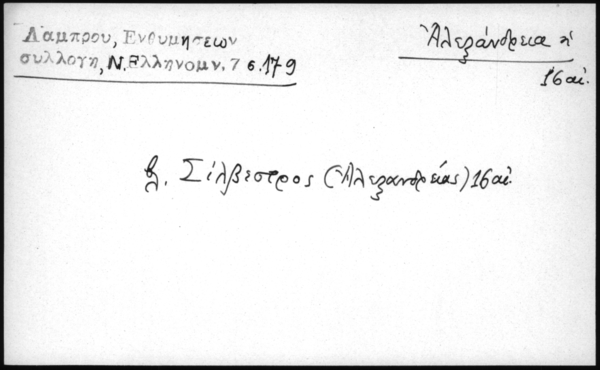 Λάμπρου, Ενθυμήσεων
συλλογή, Ν. Ελληνομν. 7 σ. 179
Ἀλεξάνδρεια ἡ
16 αἰ.
βλ. Σίλβεστρος (Ἀλεξανδρείας) 16 αἰ.